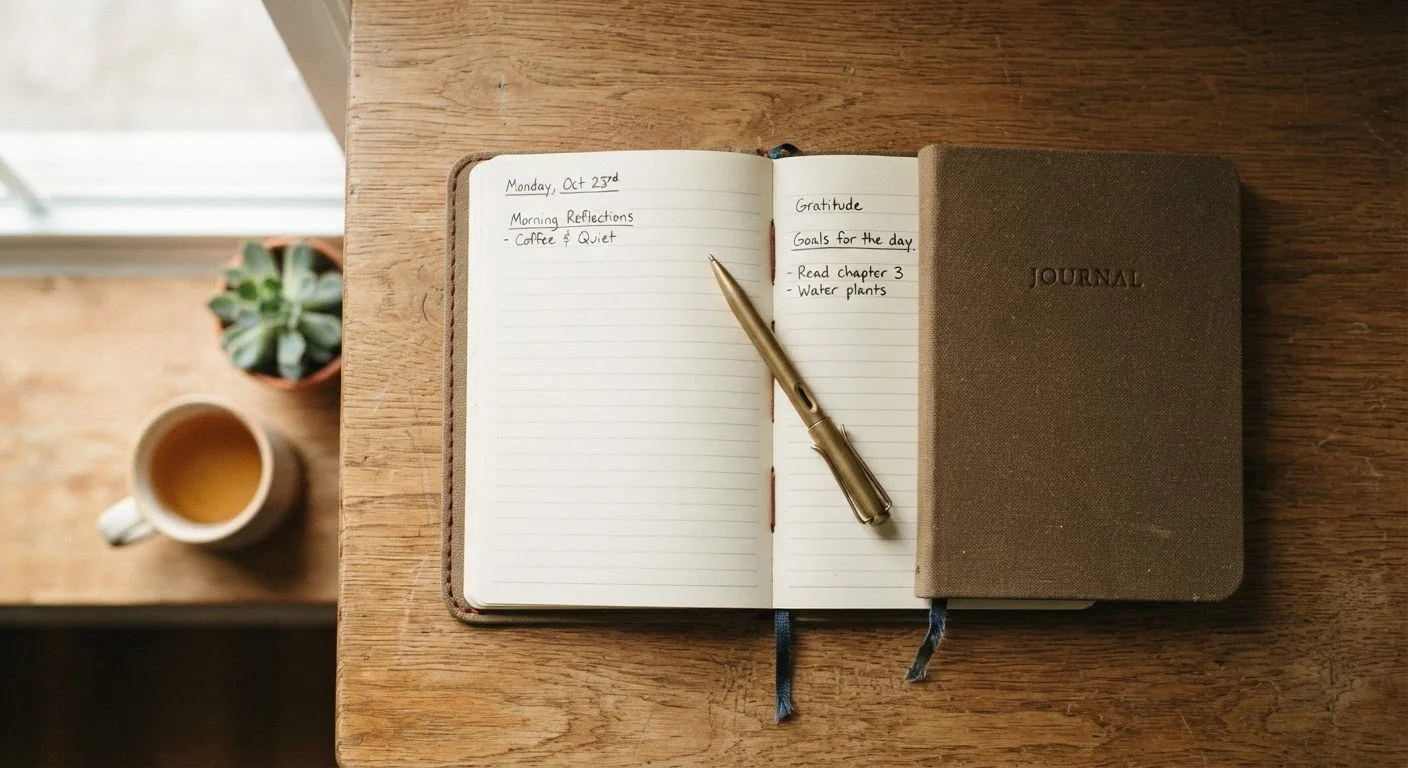 Monday, Oct 23rd
Morning Reflections
- Coffee & Quiet
Gratitude
Goals for the day.
- Read chapter 3
- Water plants
JOURNAL